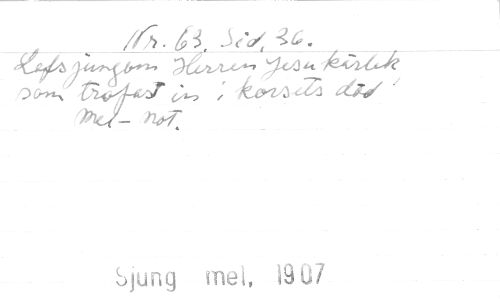 Nr. 63. Sid. 36.
Lofsjungom Herren Jesu kärlek
som trofast in i korsets död
Mel-not.
Sjung mel, 1907